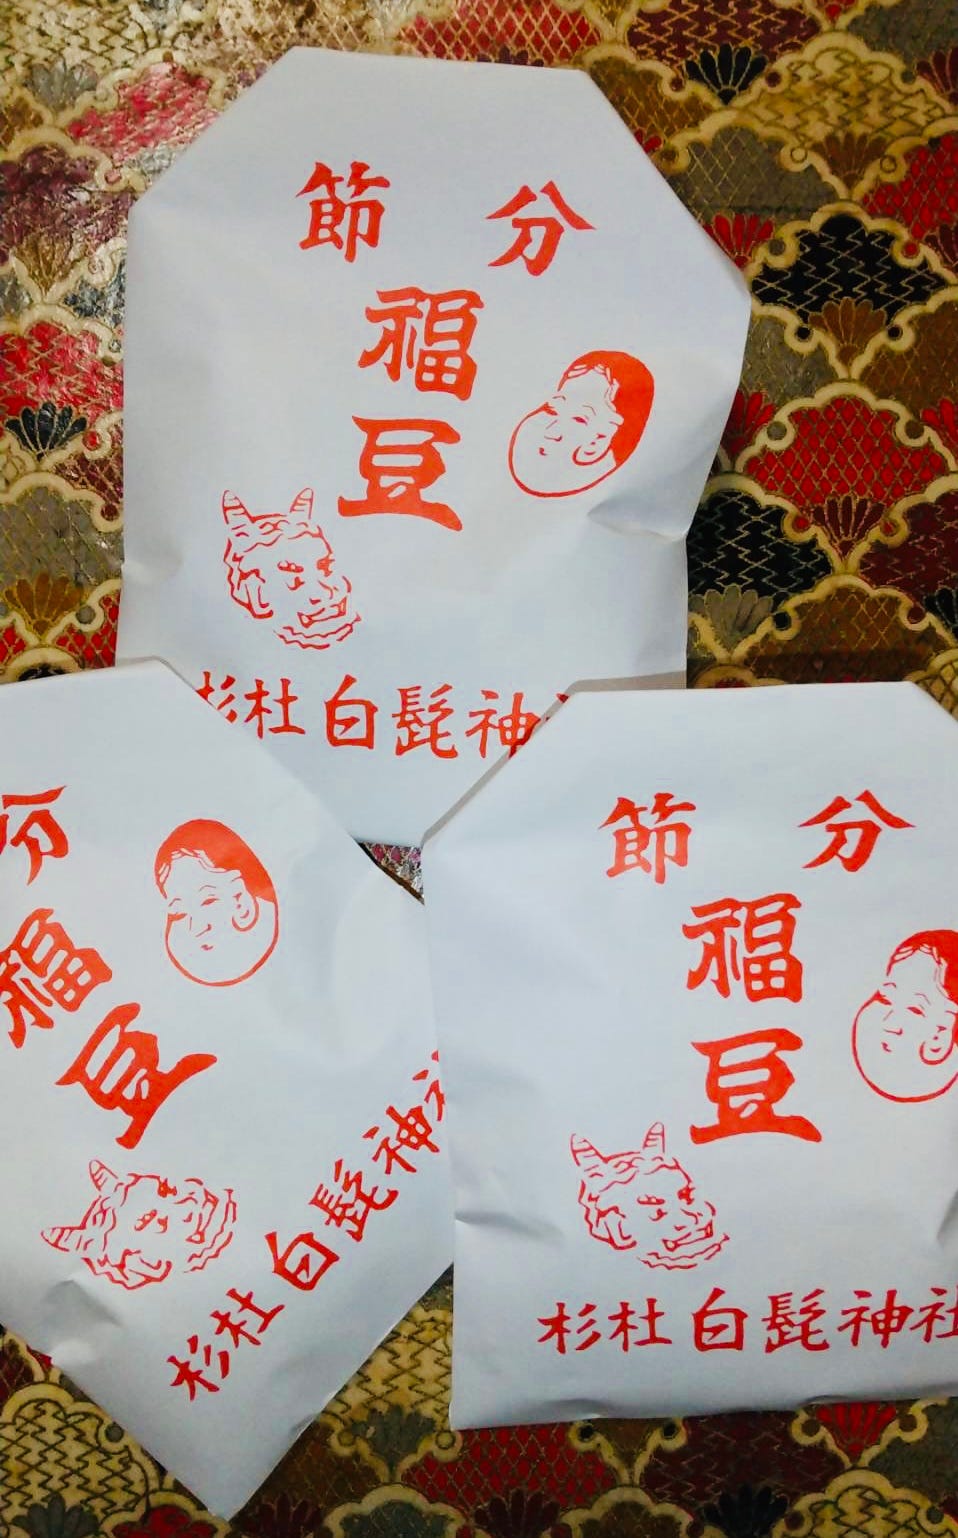 節分
福
豆
杉杜白髭神
分
福
豆
杉杜白髭神社
節分
福
豆
杉杜白髭神社